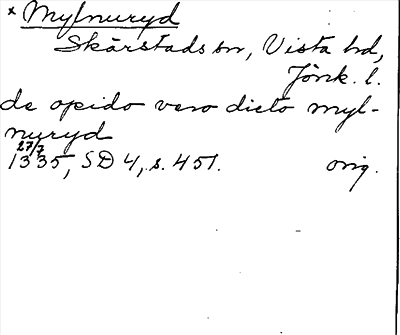 × Mylnuryd
Skärstads sn, Vista hd,
Jönk. l.
de opido vero dicto myl-
nuryd
27/7
1335, SD 4, s. 451. orig.